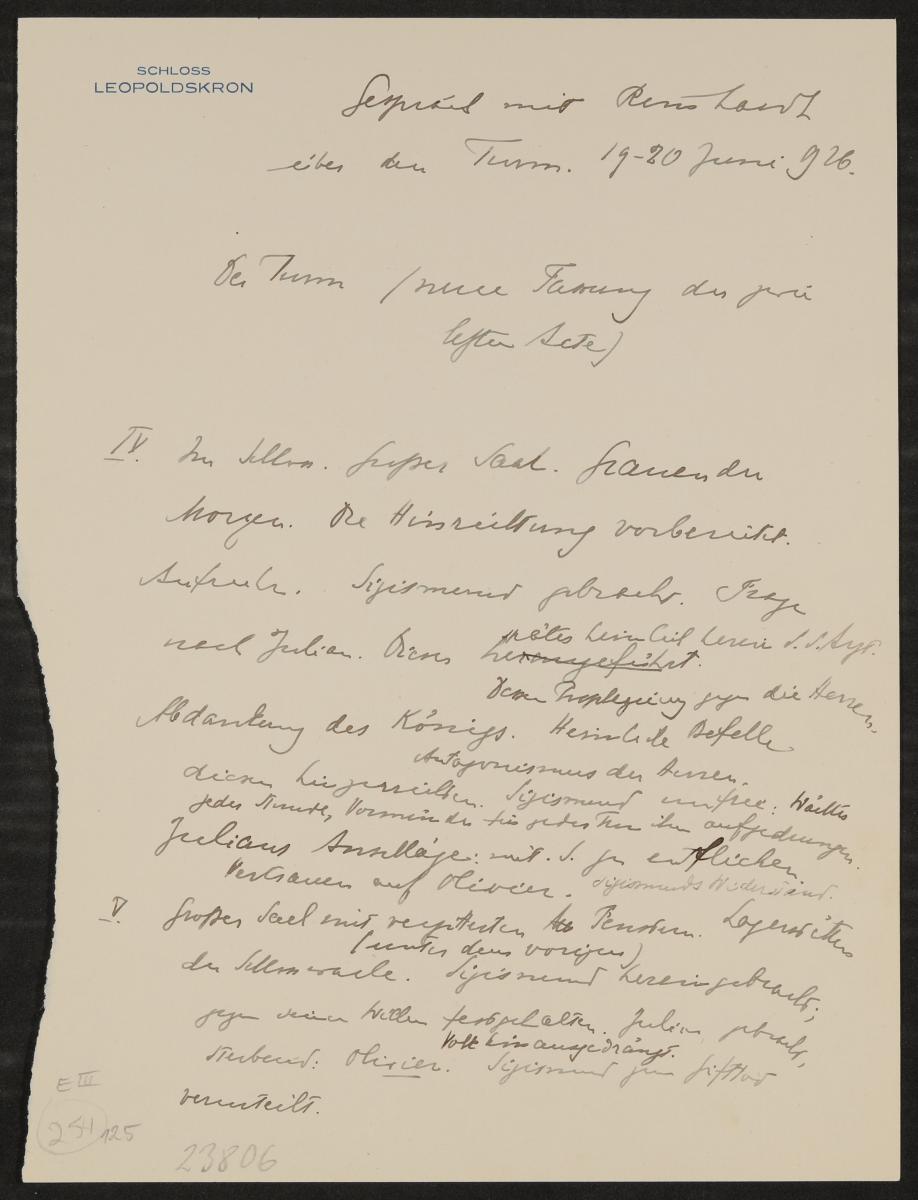 SCHLOSS
LEOPOLDSKRON
Gespräch mit Reinhardt
über den Turm. 19-20 Juni 926.
Der Turm (neue Fassung der zwei
letzten Acte)
IV. Im Schloss. Großer Saal. Grauender
Morgen. Die Hinrichtung vorbereitet.
Aufruhr. Sigismund gebracht. Frage
nach Julian. Dieser herangeführt.
später heimlich herein d. d. Arzt.
Dann gegen die Herren.
Abdankung des Königs. Heimliche Befehle
Antagonismus der Herren.
diesen hinzurichten. Sigismund unfrei: Wächter
jeder Stunde, Vormünder für jedes Tun ihm aufgedrungen.
Julians Anschläge: mit S. zu entfliehen
Vertrauen auf Olivier. Sigismunds Widerstand.
V. Großer Saal mit vergitterten Fenstern. Lagerstätten
(unter dem vorigen)
der Schlosswache. Sigismund hereingebracht;
gegen seinen Willen festgehalten. Julian gebracht,
Volk hinausgedrängt.
sterbend: Olivier. Sigismund zum Gifttod
verurteilt.
E III
254
125
23806